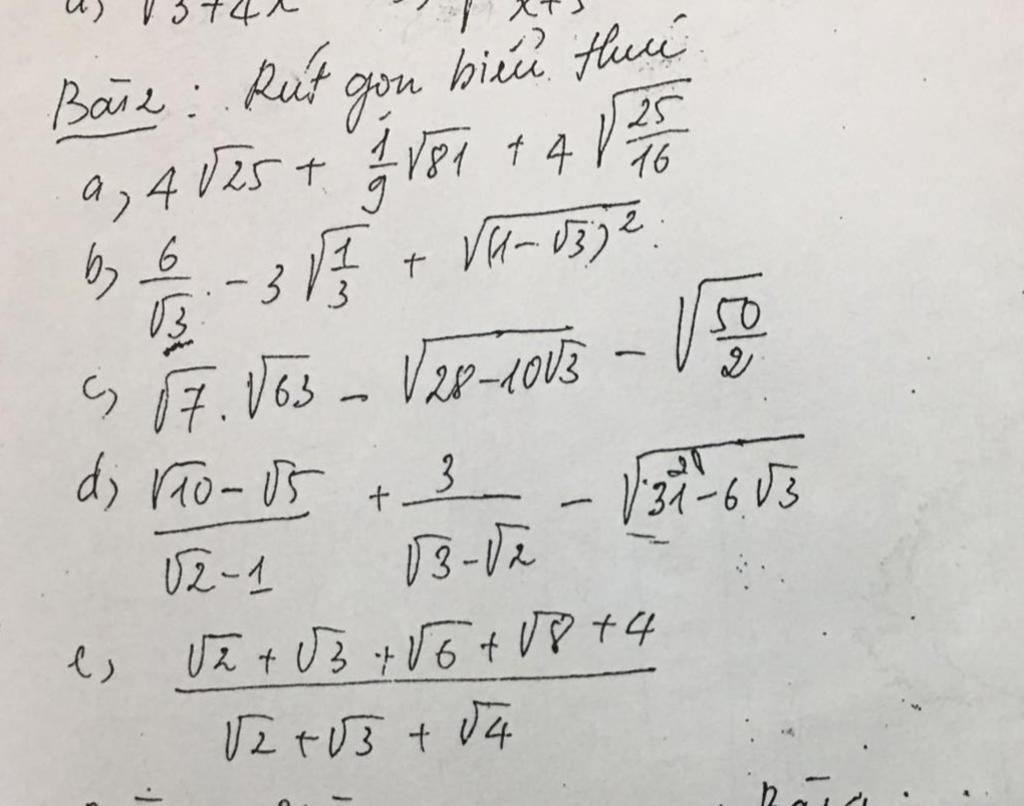 √3+4x
x+5
Bài 2 : Rút gọn biểu thức
a, 4√25 + 1/9 √81 + 4√(25/16)
b, 6/√3 - 3√(1/3) + √((1-√3)²)
c, √7 . √63 - √(28-10√3) - √(50/2)
d, (√10 - √5)/(√2 - 1) + 3/(√3 - √2) - √(31-6√3)
e, (√2 + √3 + √6 + √8 + 4)/(√2 + √3 + √4)